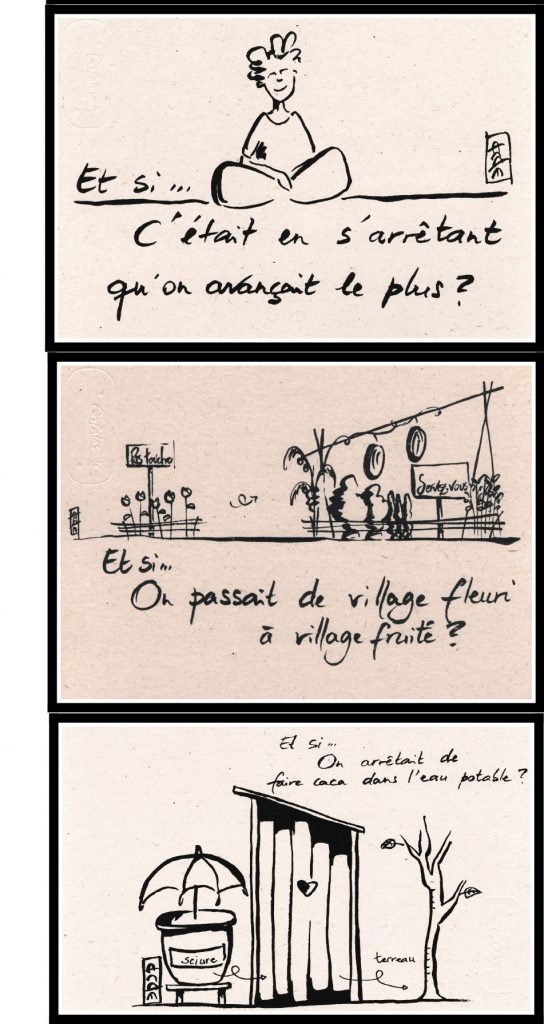 Et si...
C'était en s'arrêtant
qu'on avançait le plus ?
Pas touche
Servez-vous
Et si...
On passait de village fleuri
à village fruité ?
Et si...
On arrêtait de
faire caca dans l'eau potable ?
sciure
terreau